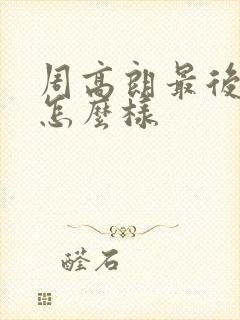 周高朗最後
怎麼樣
醛石